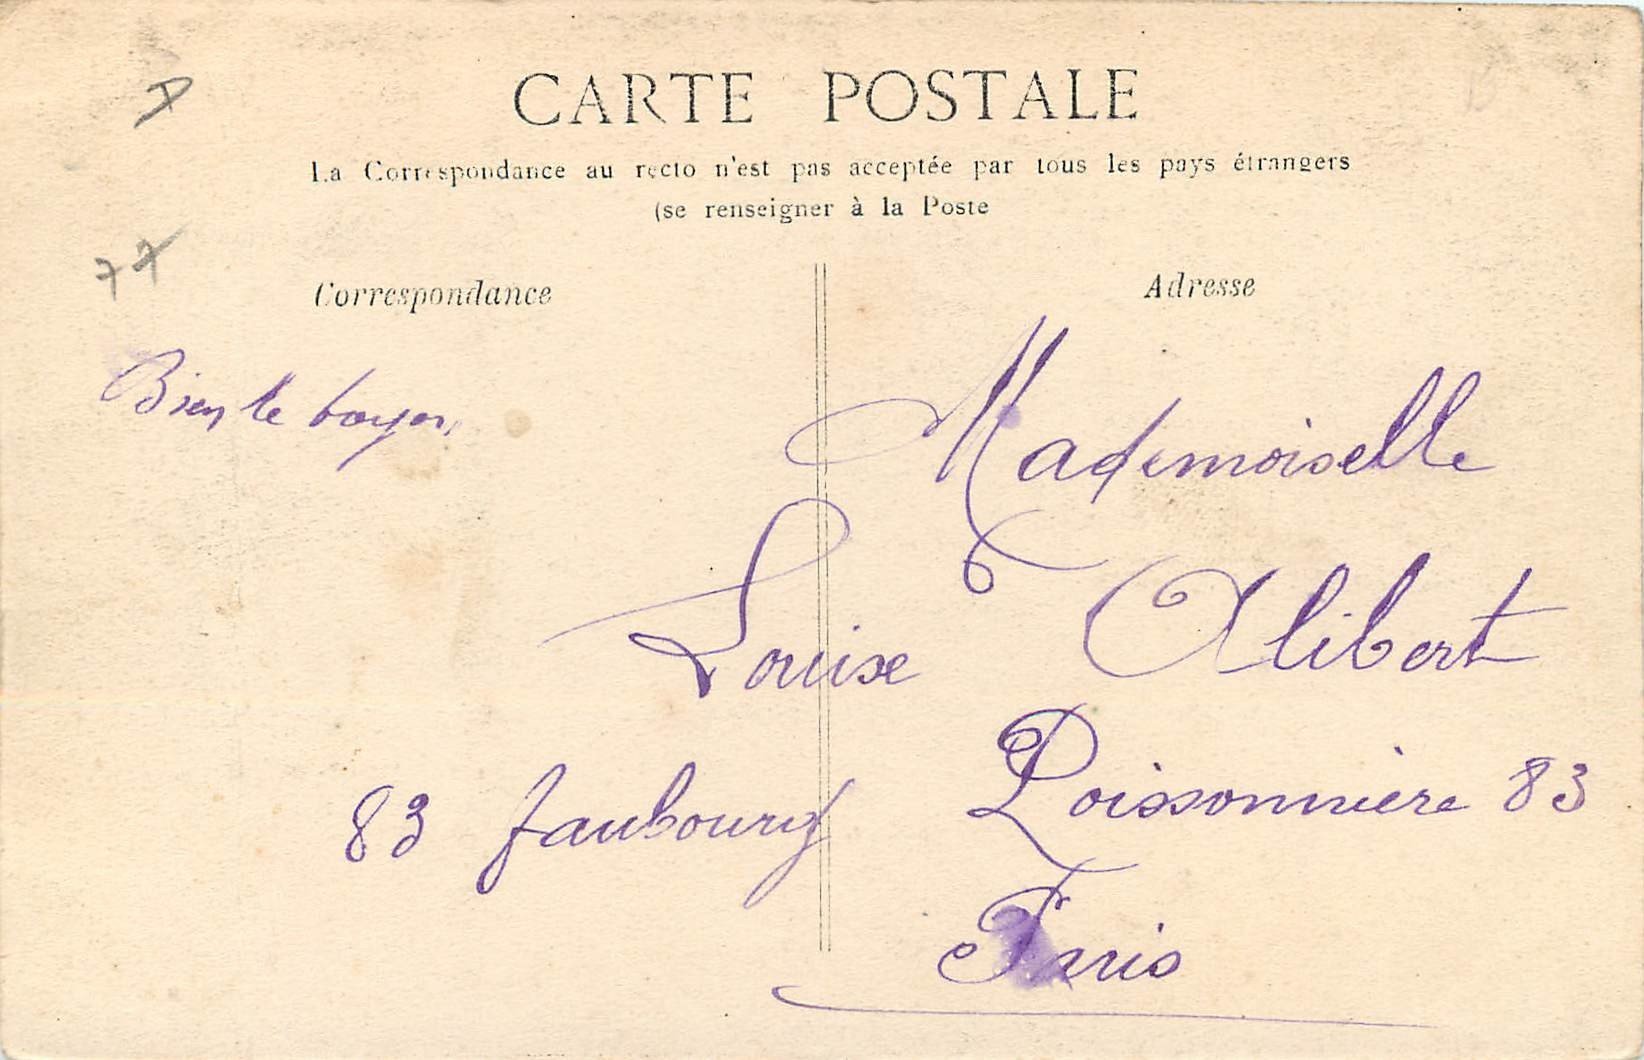 CARTE POSTALE
La Correspondance au recto n'est pas acceptée par tous les pays étrangers
(se renseigner à la Poste
77
Correspondance
Adresse
Bien le
Mademoiselle
Louise Alibert
83 faubourg Poissonnière 83
Paris